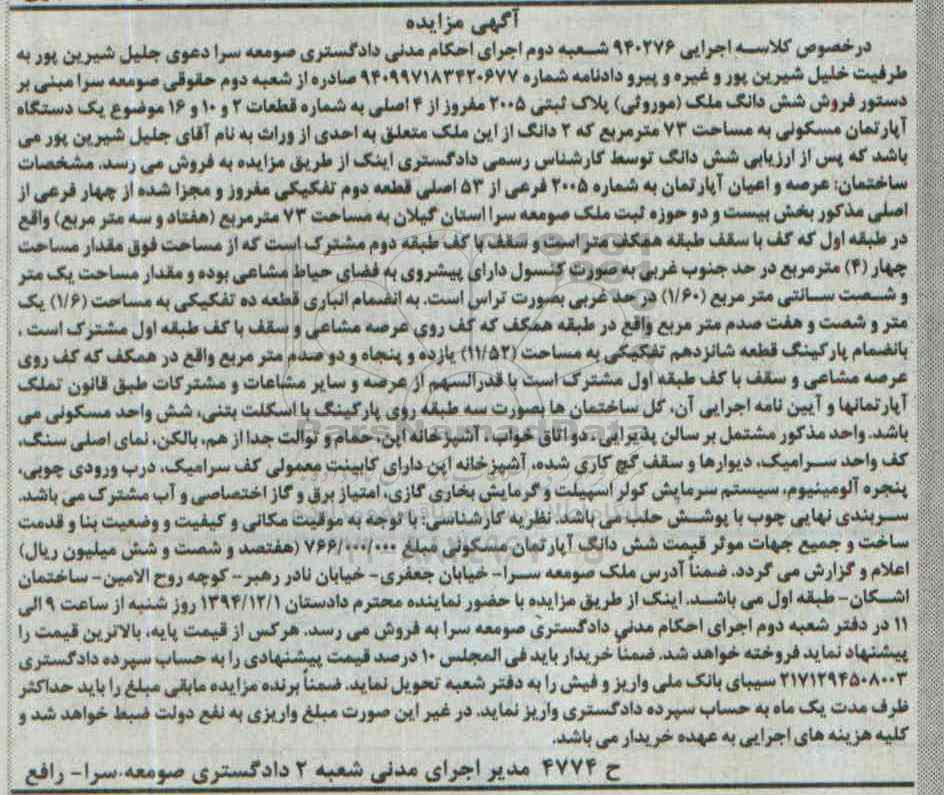 آگهی مزایده
درخصوص کلاسه اجرایی ۹۴۰۲۷۶ شعبه دوم اجرای احکام مدنی دادگستری صومعه سرا دعوی جلیل شیرین پور به
طرفیت خلیل شیرین پور و غیره و پیرو دادنامه شماره ۹۴۰۹۹۷۱۸۳۴۲۰۶۷۷ صادره از شعبه دوم حقوقی صومعه سرا مبنی بر
دستور فروش شش دانگ ملک (موروثی) پلاک ثبتی ۲۰۰۵ مفروز از ۴ اصلی به شماره قطعات ۲ و ۱۰ و ۱۶ موضوع یک دستگاه
آپارتمان مسکونی به مساحت ۷۳ مترمربع که ۲ دانگ از این ملک متعلق به احدی از وراث به نام آقای جلیل شیرین پور می
باشد که پس از ارزیابی شش دانگ توسط کارشناس رسمی دادگستری اینک از طریق مزایده به فروش می رسد. مشخصات
ساختمان: عرصه و اعیان آپارتمان به شماره ۲۰۰۵ فرعی از ۵۳ اصلی قطعه دوم تفکیکی مفروز و مجزا شده از چهار فرعی از
اصلی مذکور بخش بیست و دو حوزه ثبت ملک صومعه سرا استان گیلان به مساحت ۷۳ مترمربع (هفتاد و سه متر مربع) واقع
در طبقه اول که کف با سقف طبقه همکف متر است و سقف با کف طبقه دوم مشترک است که از مساحت فوق مقدار مساحت
چهار (۴) مترمربع در حد جنوب غربی به صورت کنسول دارای پیشروی به فضای حیاط مشاعی بوده و مقدار مساحت یک متر
و شصت سانتی متر مربع (۱/۶۰) در حد غربی بصورت تراس است. به انضمام انباری قطعه ده تفکیکی به مساحت (۱/۶) یک
متر و شصت و هفت صدم متر مربع واقع در طبقه همکف که کف روی عرصه مشاعی و سقف با کف طبقه اول مشترک است ،
بانضمام پارکینگ قطعه شانزدهم تفکیکی به مساحت (۱۱/۵۲) یازده و پنجاه و دو صدم متر مربع واقع در همکف که کف روی
عرصه مشاعی و سقف با کف طبقه اول مشترک است با قدرالسهم از عرصه و سایر مشاعات و مشترکات طبق قانون تملک
آپارتمانها و آیین نامه اجرایی آن، کل ساختمان ها بصورت سه طبقه روی پارکینگ با اسکلت بتنی، شش واحد مسکونی می
باشد. واحد مذکور مشتمل بر سالن پذیرایی، دو اتاق خواب، آشپزخانه اپن، حمام و توالت جدا از هم، بالکن، نمای اصلی سنگ،
کف واحد سرامیک، دیوارها و سقف گچ کاری شده، آشپزخانه اپن دارای کابینت معمولی کف سرامیک، درب ورودی چوبی،
پنجره آلومینیوم، سیستم سرمایش کولر اسپیلت و گرمایش بخاری گازی، امتیاز برق و گاز اختصاصی و آب مشترک می باشد.
سربندی نهایی چوب با پوشش حلب می باشد. نظریه کارشناسی: با توجه به موقیت مکانی و کیفیت و وضعیت بنا و قدمت
ساخت و جمیع جهات موثر قیمت شش دانگ آپارتمان مسکونی مبلغ ۷۶۶/۰۰۰/۰۰۰ (هفتصد و شصت و شش میلیون ریال)
اعلام و گزارش می گردد. ضمناً آدرس ملک صومعه سرا- خیابان جعفری- خیابان نادر رهبر- کوچه روح الامین- ساختمان
اشکان- طبقه اول می باشد. اینک از طریق مزایده با حضور نماینده محترم دادستان ۱۳۹۴/۱۲/۱ روز شنبه از ساعت ۹ الی
۱۱ در دفتر شعبه دوم اجرای احکام مدنی دادگستری صومعه سرا به فروش می رسد. هرکس از قیمت پایه، بالاترین قیمت را
پیشنهاد نماید فروخته خواهد شد. ضمناً خریدار باید فی المجلس ۱۰ درصد قیمت پیشنهادی را به حساب سپرده دادگستری
۲۱۷۱۲۹۴۵۰۸۰۰۳ سیبای بانک ملی واریز و فیش را به دفتر شعبه تحویل نماید. ضمناً برنده مزایده مابقی مبلغ را باید حداکثر
ظرف مدت یک ماه به حساب سپرده دادگستری واریز نماید. در غیر این صورت مبلغ واریزی به نفع دولت ضبط خواهد شد و
کلیه هزینه های اجرایی به عهده خریدار می باشد.
ح ۴۷۷۴ مدیر اجرای مدنی شعبه ۲ دادگستری صومعه سرا- رافع
ParsNamadData